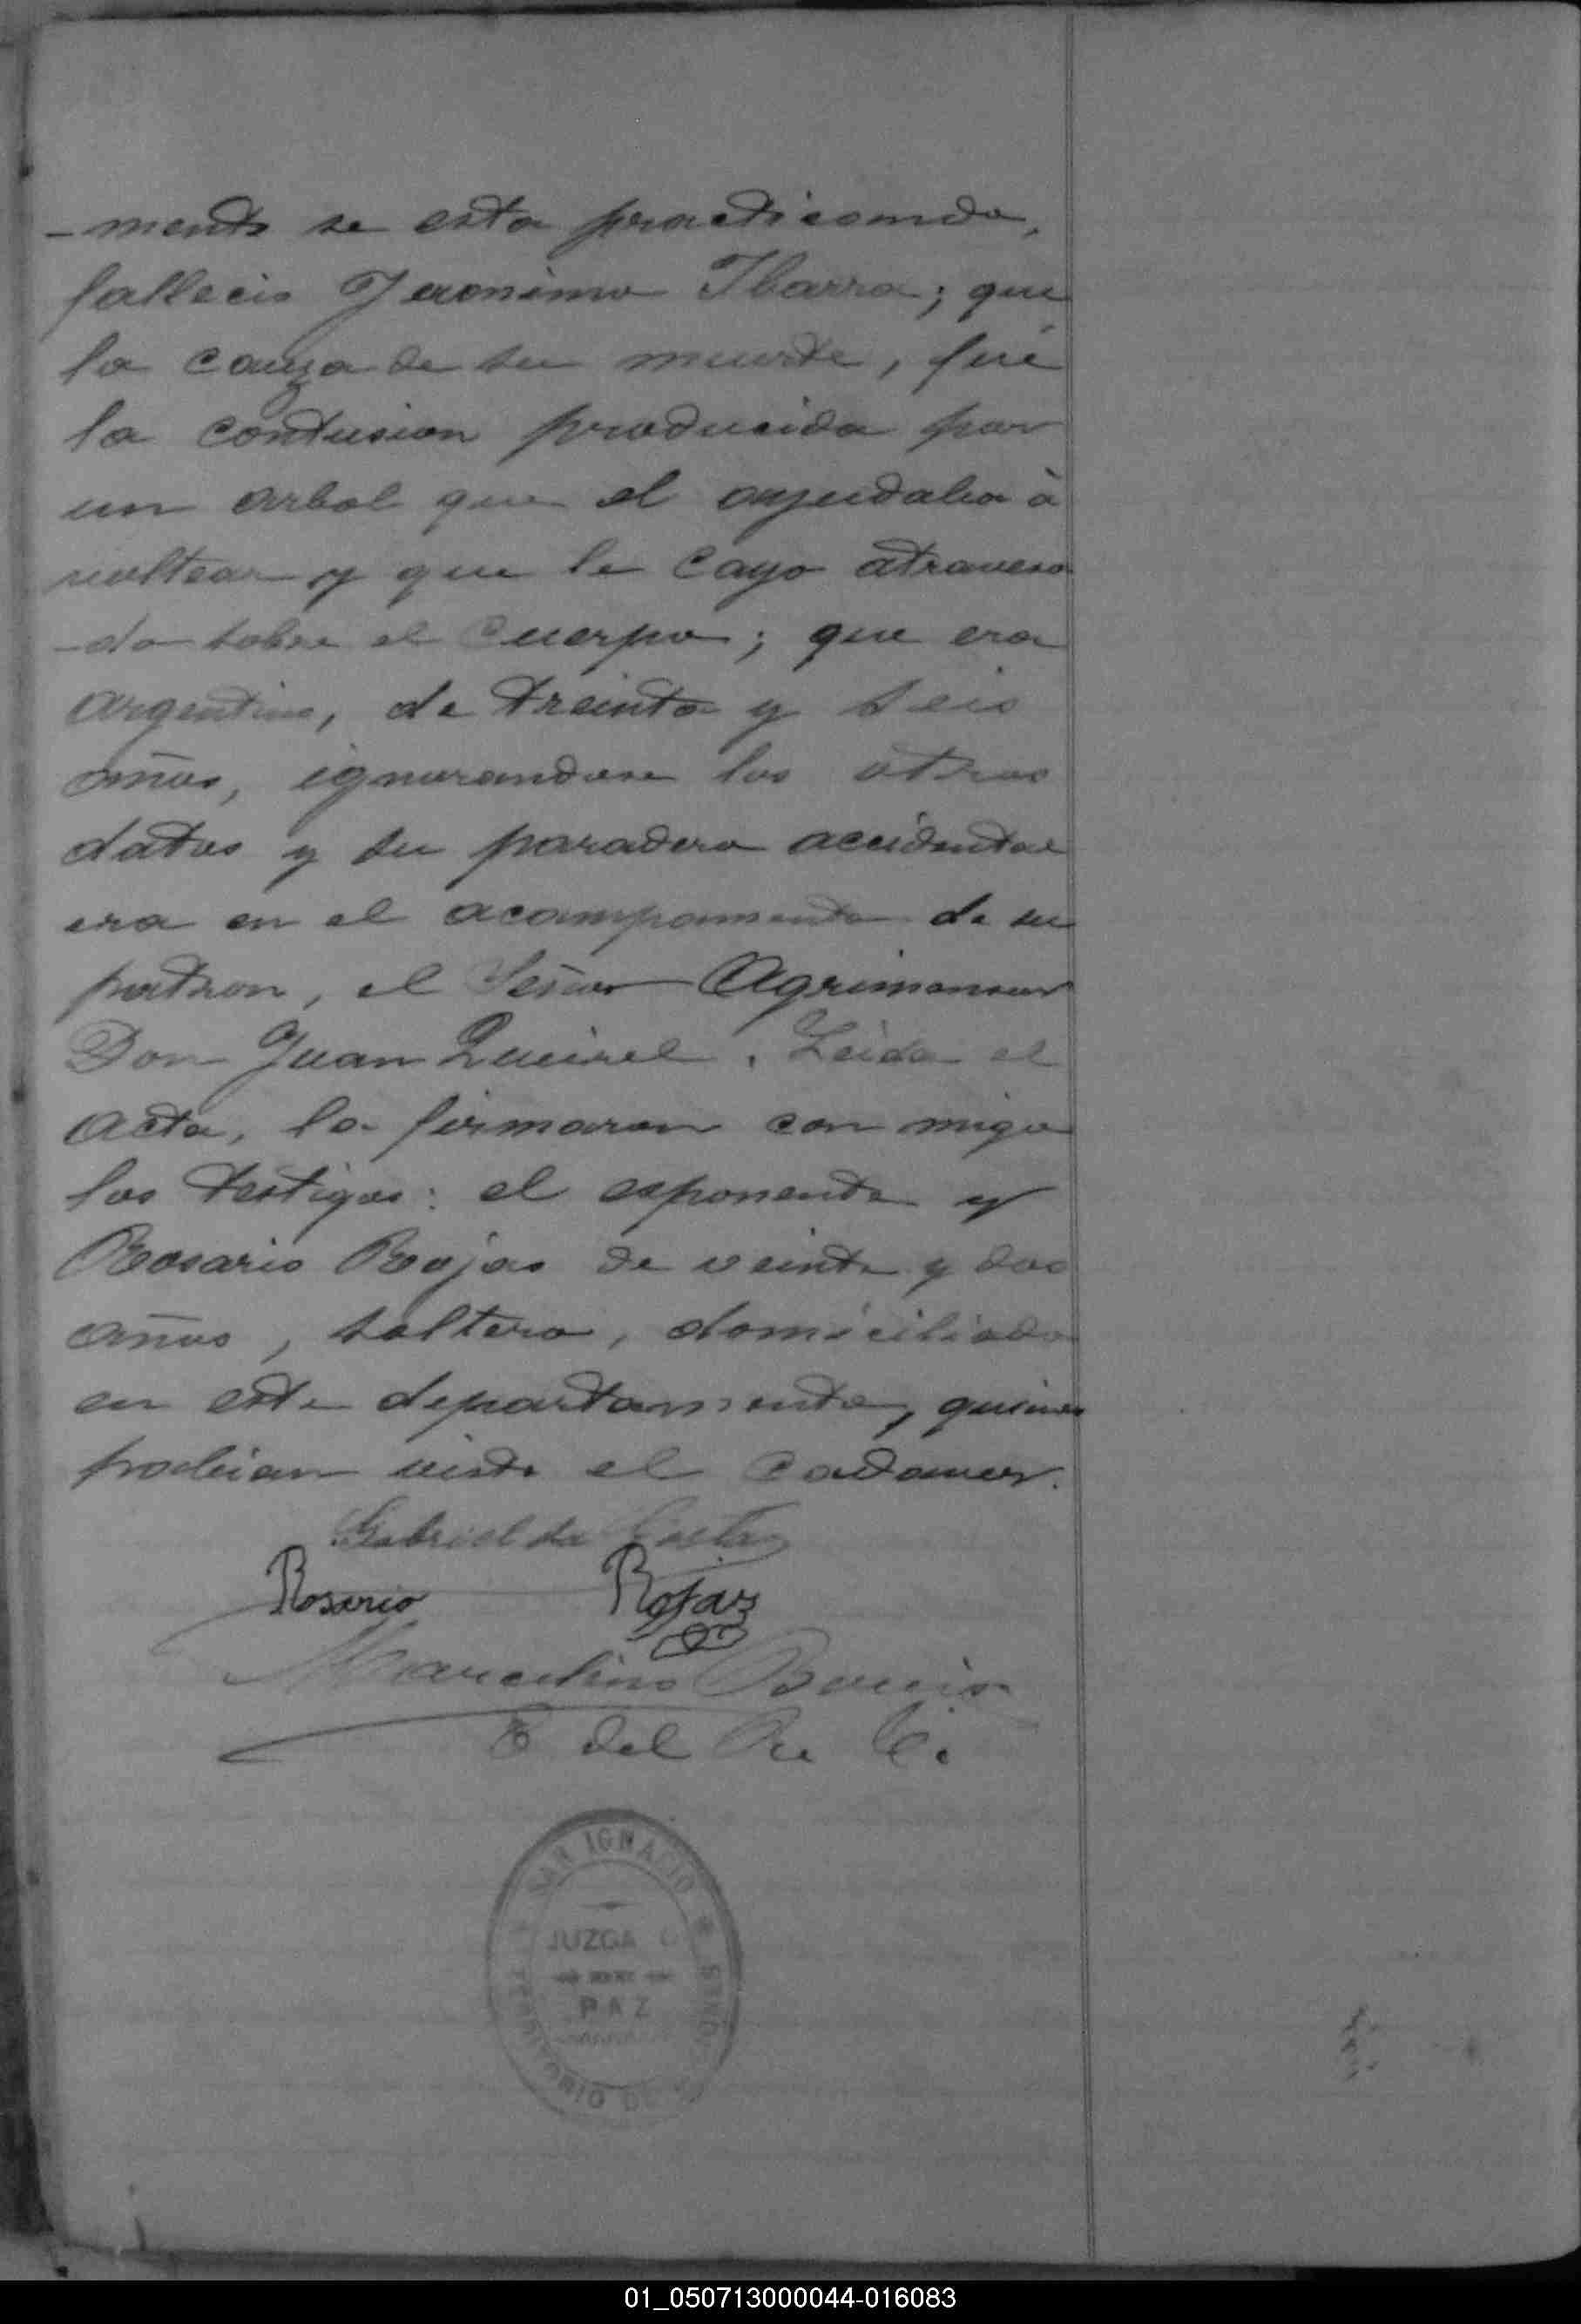 -mente se esta practicando,
fallecio Jeronimo Ibarra; que
la cauza de su muerte, fué
la contusion producida por
un arbol que el ayudaba à
voltear y que le cayo atravesa
-do sobre el cuerpo; que era
argentino, de treinta y seis
años, ignorandose los otros
datos y su paradero accidental
era en el acampamento de su
patron, el Señor Agrimensor
Don Juan Queirel. Leida el
acta, la firmaron con migo
los testigos: el esponente y
Rosario Rojas de veinte y dos
años, soltero, domiciliado
en este departamento, quienes
habian visto el cadaver.
Gabriel da Costa
Rosario Rojas
Marcelino Bouix
E del Re Ci
SAN IGNACIO
JUZGADO
DE
PAZ
TERRITORIO DE MISIONES
01_050713000044-016083